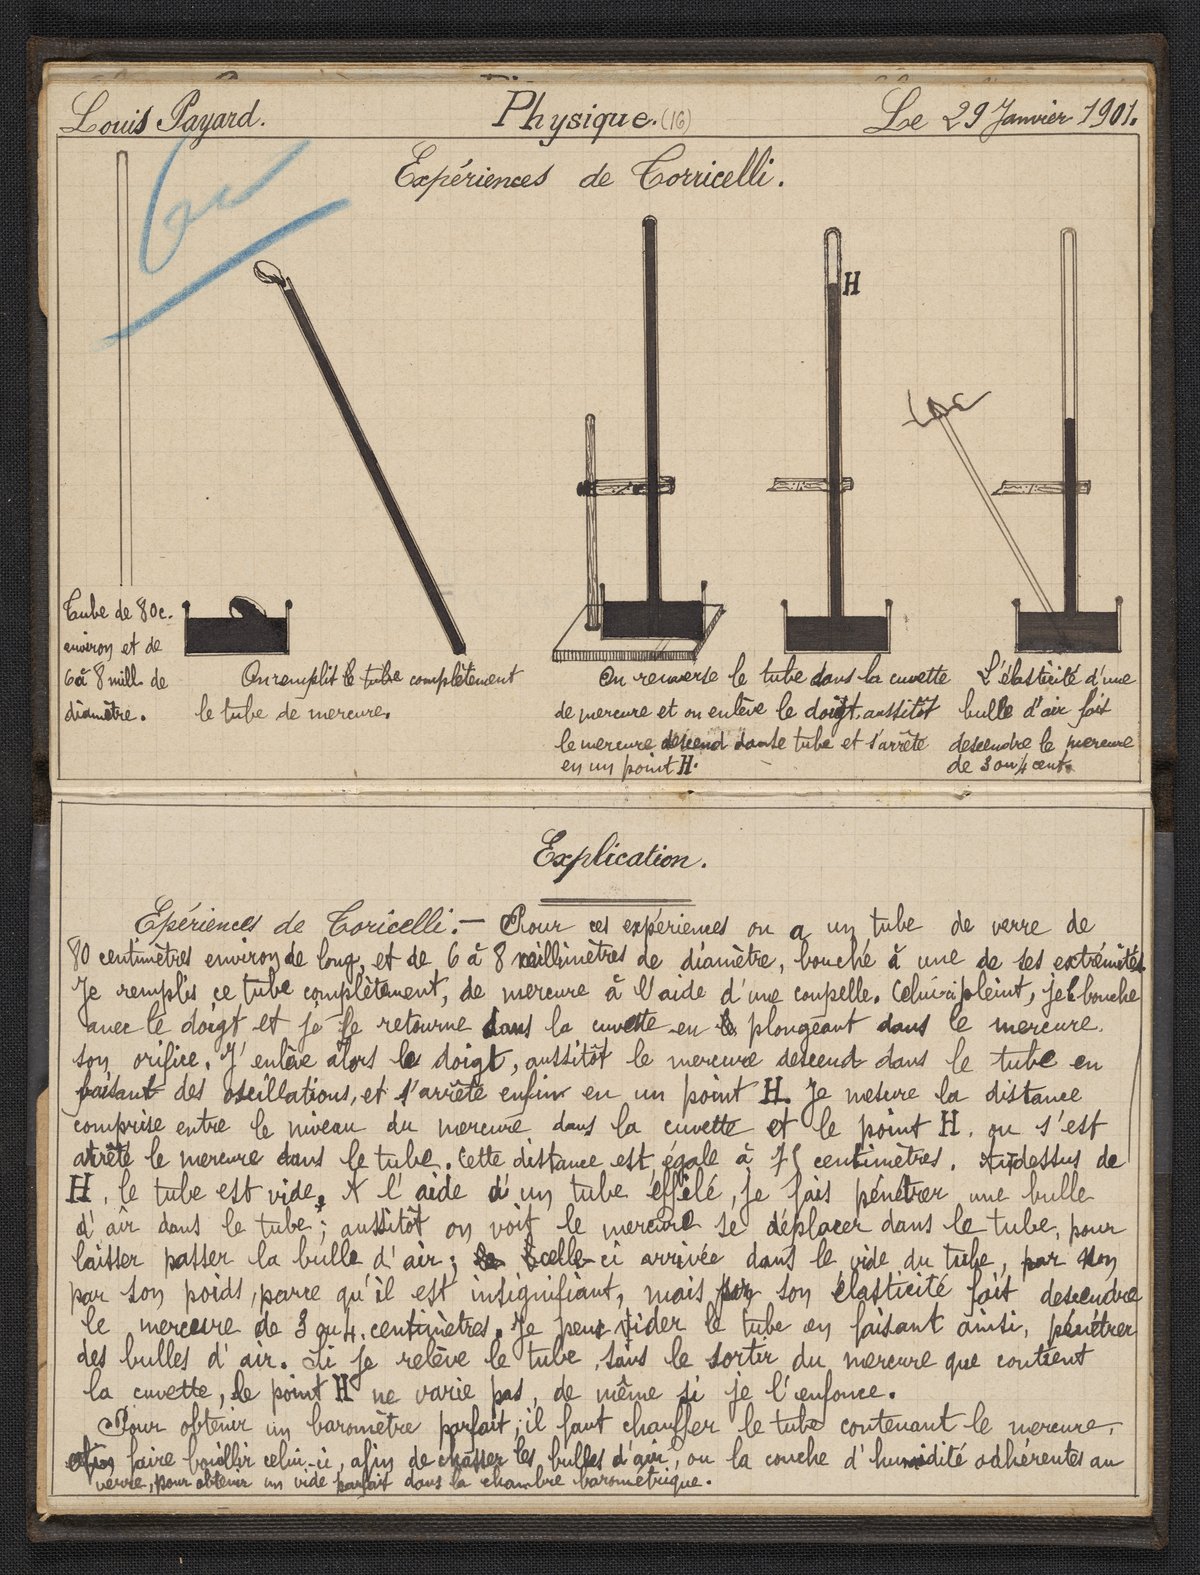 Louis Payard.
Physique. (16)
Le 29 Janvier 1901.
Expériences de Torricelli.
H
Tube de 80c.
environ et de
6 à 8 mill. de
diamètre.
On remplit le tube complètement
le tube de mercure.
On renverse le tube dans la cuvette
de mercure et on enlève le doigt, aussitôt
le mercure descend dans le tube et s'arrête
en un point H.
L'élasticité d'une
bulle d'air fait
descendre le mercure
de 3 ou 4 cent.
Explication.
Epériences de Toricelli. — Pour ces expériences on a un tube de verre de
80 centimètres environ de long, et de 6 à 8 millimètres de diamètre, bouché à une de ses extrémités
Je remplis ce tube complètement, de mercure à l'aide d'une coupelle. Celui-ci pleint, je le bouche
avec le doigt et je le retourne dans la cuvette en le plongeant dans le mercure
son orifice. J'enlève alors le doigt, aussitôt le mercure descend dans le tube en
faisant des oscillations, et s'arrête enfin en un point H. Je mesure la distance
comprise entre le niveau du mercure dans la cuvette et le point H. ou s'est
arrêté le mercure dans le tube. Cette distance est égale à 75 centimètres. Au dessus de
H, le tube est vide. A l'aide d'un tube éffilé, je fais pénétrer une bulle
d'air dans le tube; aussitôt on voit le mercure se déplacer dans le tube, pour
laisser passer la bulle d'air; celle-ci arrivée dans le vide du tube, par non
par son poids, parce qu'il est insignifiant, mais par son élasticité fait descendre
le mercure de 3 ou 4 centimètres. Je peux vider le tube en faisant ainsi, pénétrer
des bulles d'air. Si je relève le tube, sans le sortir du mercure que contient
la cuvette, le point H ne varie pas, de même si je l'enfonce.
Pour obtenir un baromètre parfait, il faut chauffer le tube contenant le mercure,
afin faire bouillir celui-ci, afin de chasser les bulles d'air, ou la couche d'humidité adhérentes au
verre, pour obtenir un vide parfait dans la chambre barométrique.